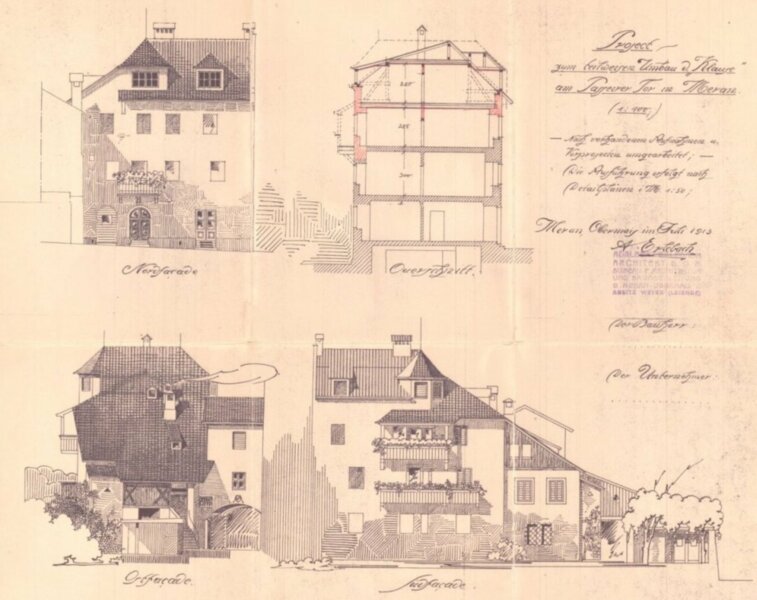 Project
zum teilweisen Umbau d. "Klause"
am Passeirer Tor in Meran.
(1:100.)
— Nach vorhandenen Aufnahmen u.
Vorprojecten umgearbeitet; —
(Die Ausführung erfolgt nach
Detailplänen i. M. 1:50;
Meran Obermais im Juli 1913
ARCHITEKT
Nordfacade
Querschnitt.
Der Bauherr:
Der Unternehmer:
Ostfaçade.
Südfaçade.